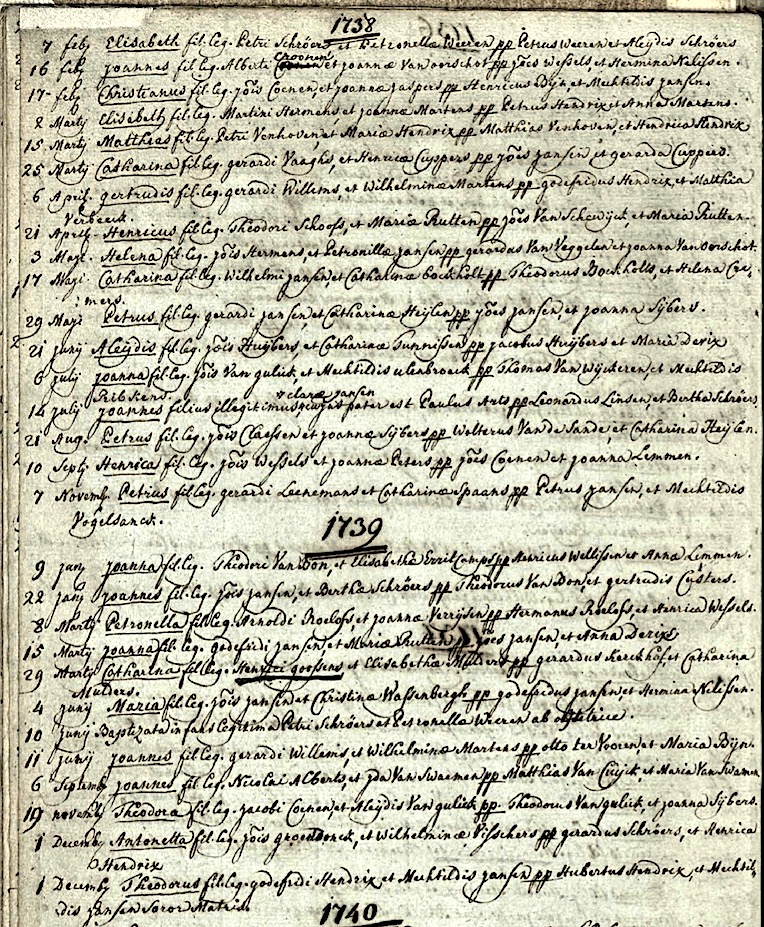 1738
7 feb Elisabeth fil: leg. Petri Schröers et Petronellæ Weeren pp Petrus Weeren et Aleydis Schröers
16 feb joannes fil leg. Alberti Croonen et joannæ Van oorschot pp jões Wessels et Hermina Nelissen.
17 feb Christianus fil: leg. jõis Coenen et joannæ jaspers pp Henricus Bijn, et Mechtildis jansen.
2 Martij Elisabeth fil. leg. Martini Hermens et joannæ Martens pp Petrus Hendrix et Anna Martens.
15 Martij Matthias fil. leg. Petri Venhoven, et Mariæ Hendrix pp Matthias Venhoven, et Hendrica Hendrix
25 Martij Catharina fil: leg. gerardi Vaaghs, et Henricæ Cuppers pp jões jansen, et gerarda Cuppers.
6 April. gertrudis fil. leg. gerardi Willems, et Wilhelminæ Martens pp godefridus Hendrix, et Matthia
Verbeeck.
21 April. Henricus fil. leg. Theodori Schoofs, et Mariæ Rutten pp jões Van Schewijck et Maria Rutten.
3 Maji. Helena fil. leg. jõis Hermens, et Petronillæ jansen pp gerardus Van Veggelen et joanna Van oorschot.
17 Maji Catharina fil. leg. Wilhelmi jansen et Catharinæ bockholt pp Theodorus Bockholts, et Helena Cre-
mers.
29 Maji Petrus fil. leg. gerardi jansen, et Catharinæ Heijlen pp jões jansen, et joanna Sijbers.
21 junij Aleydis fil. leg. jõis Huijbers, et Catharinæ Tunnissen pp jacobus Huijbers et Maria Derix
6 julij joanna fil. leg. jõis Van gulick et Mechtildis ulenbroeck pp Thomas Van Wijckeren, et Mechtildis
Ribskens.
14 julij joannes filius illegitimus + claræ jansen cujus pater est Paulus Arts pp Leonardus Linsen, et Bertha Schröers
21 Aug. Petrus fil. leg. jõis Claessen et joannæ Sijbers pp Wolterus Van de Sande, et Catharina Heijlen.
10 Septb. Henrica fil. leg. jõis Wessels et joannæ Peters pp jões Coenen et joanna Lemmen.
7 Novemb. Petrus fil leg. gerardi Leenemans et Catharinæ Spaans pp Petrus jansen, et Mechtildis
Vogelsanck.
1739
9 janij joanna fil. leg. Theodori Van Don, et Elisabethæ Errit Camps pp Henricus Wellissen et Anna Lemmen.
22 janij joannes fil. leg. jõis jansen, et Berthæ Schröers pp Theodorus Van Don, et gertrudis Custers.
8 Martij Petronella fil leg. Arnoldi Roelofs et joannæ Verrijsen pp Hermanus Roelofs, et Henrica Wessels.
15 Martij joanna fil. leg. godefridi jansen, et Mariæ Rutten pp jões jansen, et Anna Derix
29 Martij Catharina fil leg. Henrici goossens et Elisabethæ Mulders pp gerardus Kerckhof, et Catharina
Mulders.
4 junij Maria fil. leg. jõis jansen et Christinæ Wassenbergh pp godefridus jansen et Hermina Nelissen.
10 junij Baptizata infans legitima Petri Schröers et Petronellæ Weeren ab obstetrice.
11 junij joannes fil leg. gerardi Willems, et Wilhelminæ Martens pp otto ter Vooren, et Maria Bijn.
6 Septemb joannes fil leg. Nicolai Alberts, et jda Van Swaemen pp Matthias Van Cuijk, et Maria Van Swamen
19 novemb Theodora fil. leg. jacobi Coenen, et Aleydis Van gulick pp. Theodorus Van gulick et joanna Sijbers.
1 Decemb Antonetta fil. leg. jõis groendonck, et Wilhelminæ Visschers pp gerardus Schröers, et Henrica
Hendrix
1 Decemb Theodorus fil. leg. godefridi Hendrix et Mechtildis jansen pp Hubertus Hendrix, et Mechtil-
dis jansen Soror Matris
1740